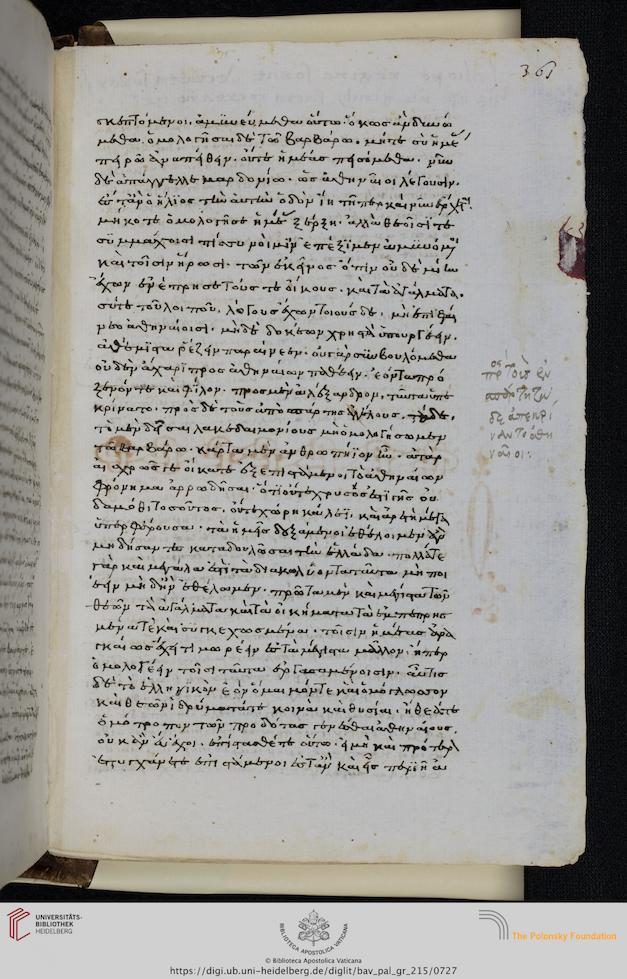 361
σκεπτόμενοι. ἀμυνεύμεθα οὕτω ὅκως ἂν δυνώ
μεθα. ὁμολογῆσαι δὲ τῶ βαρβάρω. μήτε σὺ ἡμέ
πειρῶ ἀναπείθειν. οὔτε ἡμέας πεισόμεθα. νῦν
δὲ ἀπάγγελλε μαρδονίω. ὡς ἀθηναῖοι λέγουσιν.
ἔστ' ἂν ὁ ἥλιος τὴν αὐτὴν ὁδὸν ἴη τῆπερ καὶ νῦν ἔρχεται.
μήκοτε ὁμολογῆσαι ἡμέ ξέρξη. ἀλλὰ θεοῖσί τε
συμμάχοισι πίσυνοί μιν ἐπέξιμεν ἀμυνόμ
καὶ τοῖσιν ἥρωσι. τῶν ἐκεῖνος ὄπιν οὐδεμίαν
ἔχων ἐνέπρησε τούς τε οἴκους. καὶ τὰ ἀγάλματα.
σύτε τοῦ λοιποῦ. λόγους ἔχων τοιούσδε, μὴ ἐπιφαί
νεο ἀθηναίοισι. μηδὲ δοκέων χρηστὰ ὑπουργέειν.
ἀθέμιστα ῥέζειν παραίνεεν. οὐ γάρ σε βουλόμεθα
οὐδὲν ἄχαρι πρὸς ἀθηναίων παθέειν. ἐόντα πρό
ξενόν τε καὶ φίλον. πρὸς μὲν ἀλέξανδρον. ταῦτα ὑπε
κρίναντο. πρὸς δὲ τοὺς ἀπὸ σπάρτης ἀγγέλους. τάδε.
τὸ μὲν δεῖσαι λακεδαιμονίους μὴ ὁμολογήσωμεν
τῶ βαρβάρω. κάρτα μὲν ἀνθρωπήϊον ἦν. ἀτὰρ
αἰσχρῶς τε οἴκατε ἐξεπιστάμενοι τὸ ἀθηναίων
φρόνημα ἀρρωδῆσαι. ὅτι οὔτε χρυσός ἐστι γῆς οὐ
δαμόθι τοσοῦτος. οὔτε χώρη κάλλεϊ. καὶ ἀρετῆ μέγα
ὑπερφέρουσα. τὰ ἡμεῖς δεξάμενοι ἐθέλοιμεν ἂν
μηδίσαντες καταδουλῶσαι τὴν ἑλλάδα. πολλά τε
γὰρ καὶ μεγάλα ἐστὶ τὰ διακωλύοντα ταῦτα μὴ ποι
έειν μηδ' ἢν ἐθέλωμεν. πρῶτα μὲν καὶ μέγιστα τῶν
θεῶν τὰ ἀγάλματα καὶ τὰ οἰκήματα ἐμπεπρησ
μένα τε καὶ συγκεχωσμένα. τοῖσιν ἡμέας ἀναγ
καίως ἔχει τιμωρέειν ἐς τὰ μέγιστα μᾶλλον. ἤπερ
ὁμολογέειν τοῖσι ταῦτα ἐργασαμένοισιν. αὖτις
δὲ τὸ ἑλληνικὸν ἐὸν ὅμαιμόν τε καὶ ὁμόγλωσσον
καὶ θεῶν ἱδρύματά τε κοινὰ καὶ θυσίαι. ἤθεά τε
ὁμότροπα τῶν προδότας γενέσθαι ἀθηναίους.
οὐκ ἂν εὖ ἔχοι. ἐπίστασθέ τε οὕτω. εἰ μὴ καὶ πρότερον
ἐτυγχάνετε ἐπιστάμενοι ἔστ' ἂν καὶ εἷς περιῆ ἀ
UNIVERSITÄTS-
BIBLIOTHEK
HEIDELBERG
BIBLIOTECA APOSTOLICA VATICANA
The Polonsky Foundation
© Biblioteca Apostolica Vaticana
https://digi.ub.uni-heidelberg.de/diglit/bav_pal_gr_215/0727